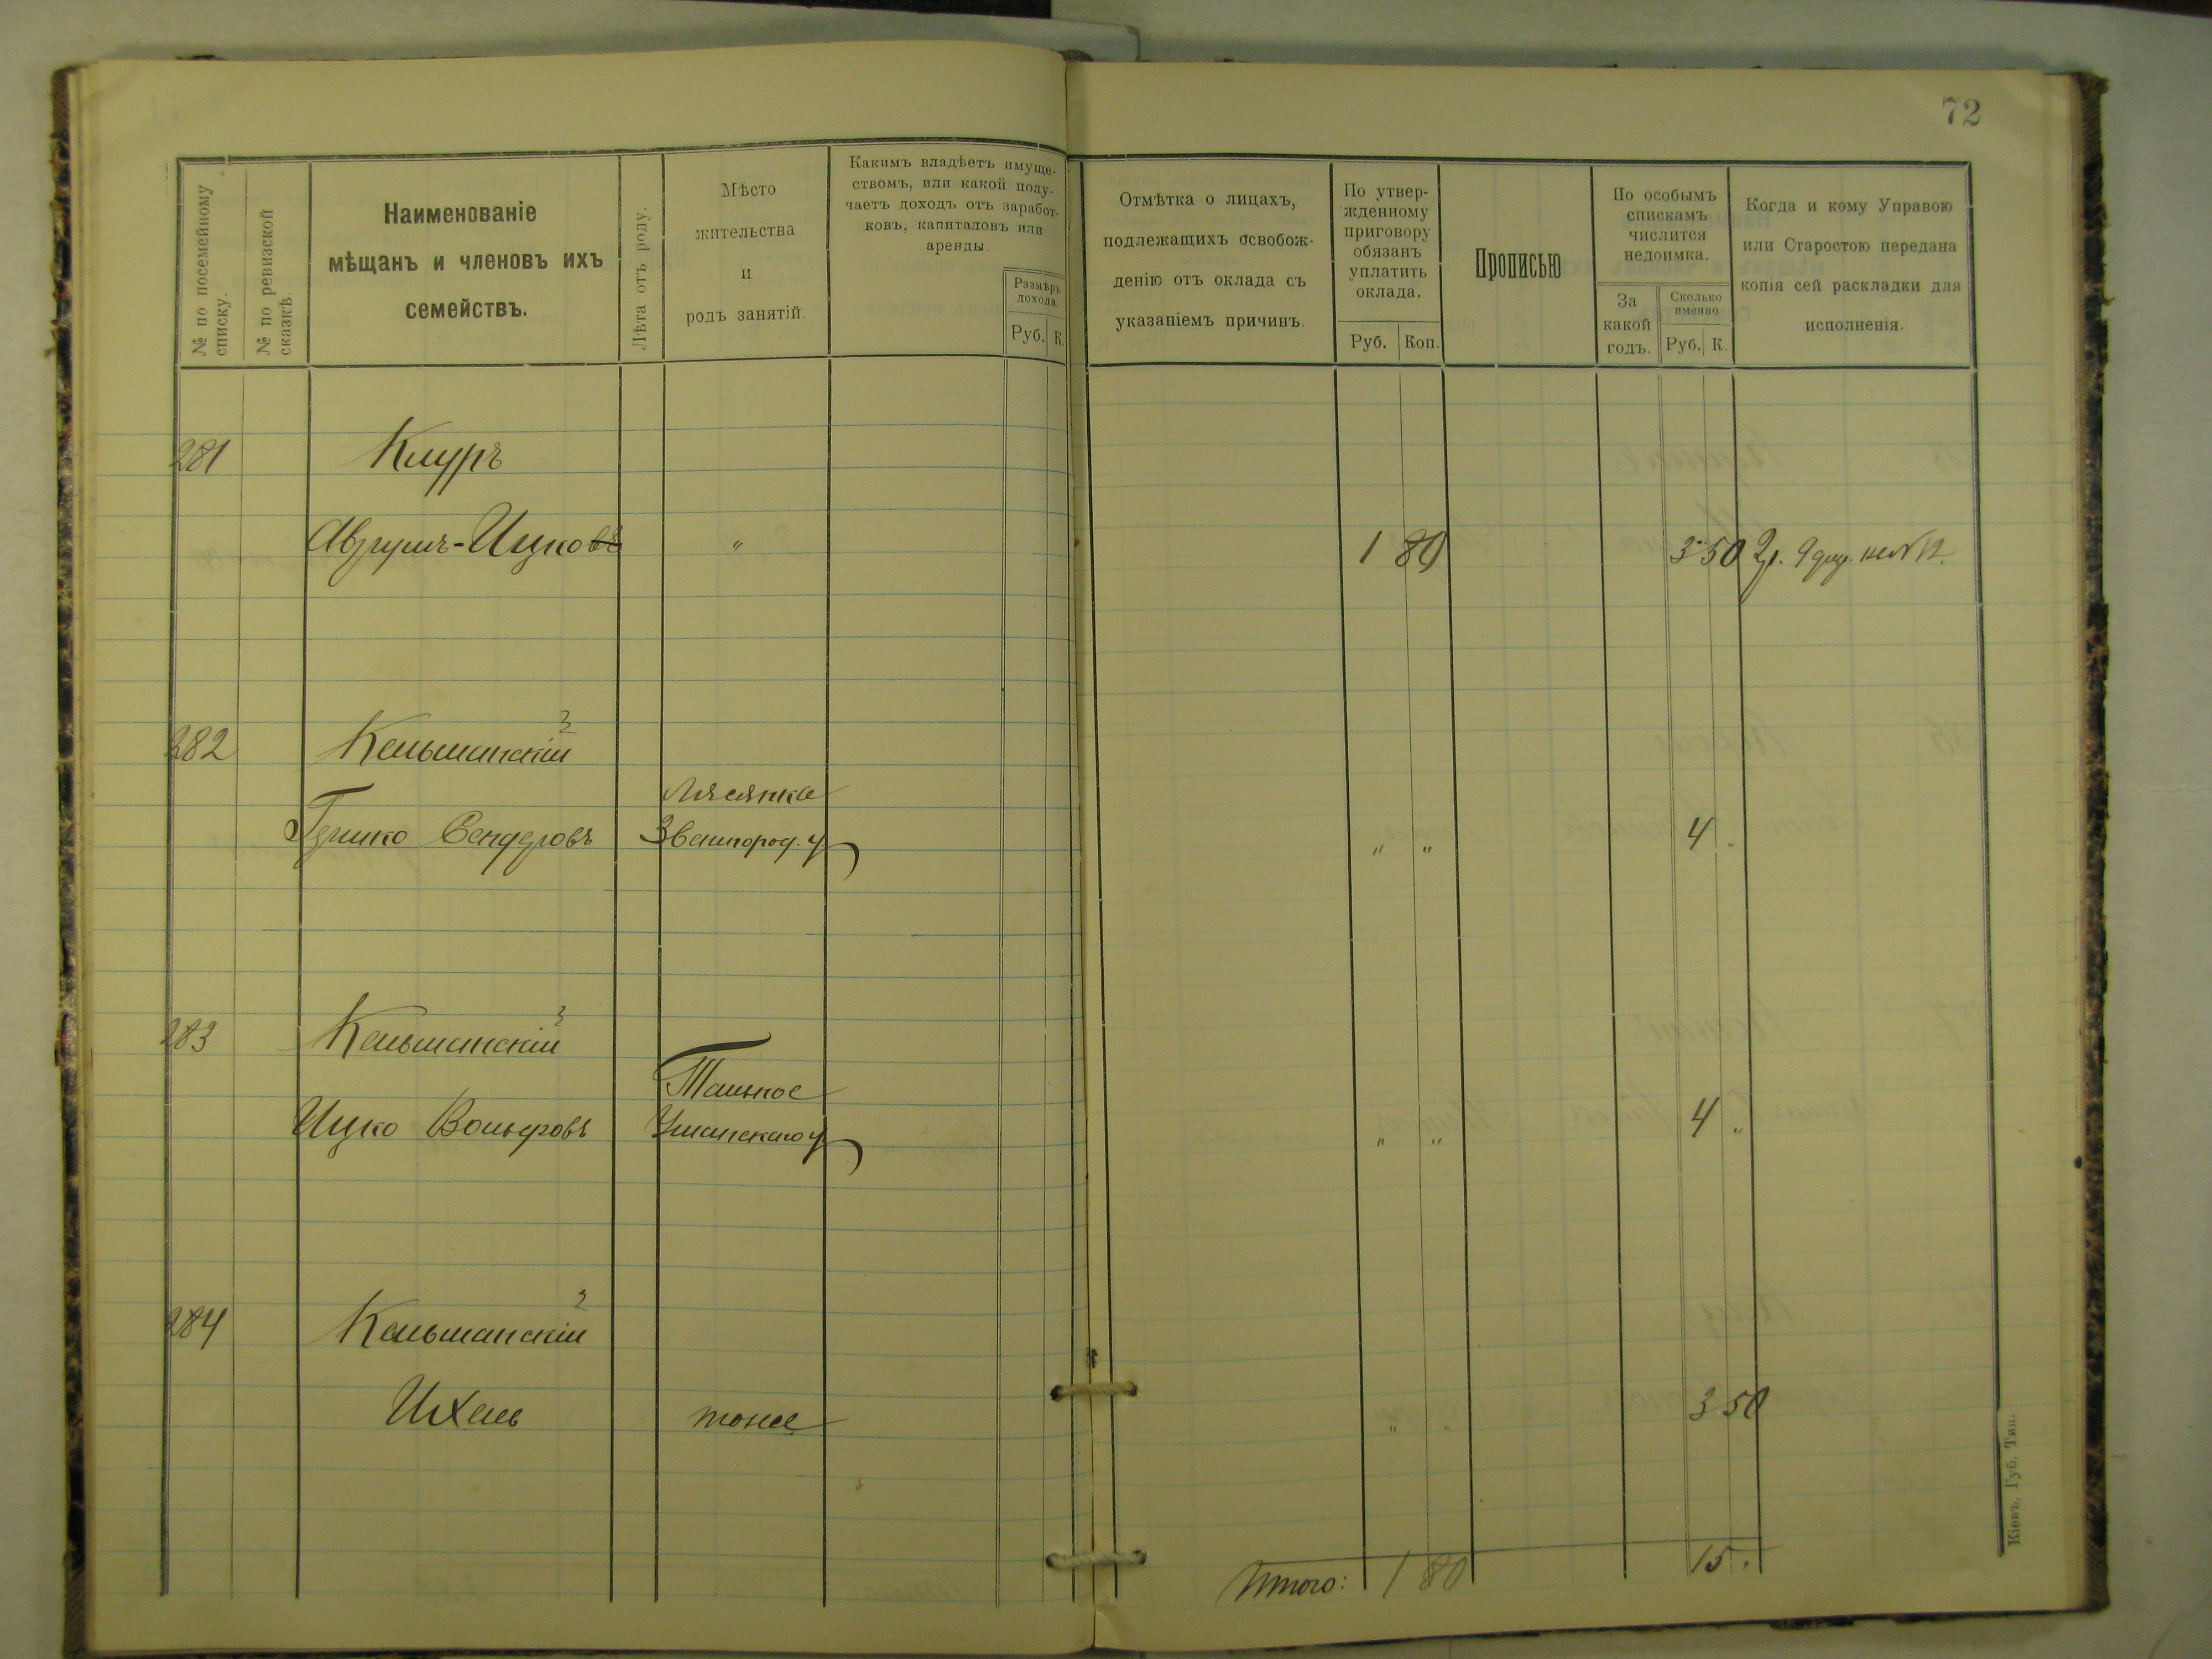 72
№ по посемейному
списку.
№ по ревизской
сказкѣ.
Наименованіе
мѣщанъ и членовъ ихъ
семействъ.
Лѣта отъ роду.
Мѣсто
жительства
и
родъ занятій.
Какимъ владѣетъ имуще-
ствомъ, или какой полу-
чаетъ доходъ отъ заработ-
ковъ, капиталовъ или
аренды.
Размѣръ
дохода.
Руб. К.
Отмѣтка о лицахъ,
подлежащихъ освобож-
денію отъ оклада съ
указаніемъ причинъ.
По утвер-
жденному
приговору
обязанъ
уплатить
оклада.
Руб. Коп.
Прописью
По особымъ
спискамъ
числится
недоимка.
За
какой
годъ.
Сколько
именно
Руб. К.
Когда и кому Управою
или Старостою передана
копія сей раскладки для
исполненія.
281 Клуръ
Аврумъ-Ицковъ " 1 80 3 50 2р. 9 № 12.
282 Кальманскій
Лясянка
Гершко Сендеровъ Звенигород. у " " 4 "
283 Кальманскій
Тальное
Ицко Вольфовъ Уманскаго у " " 4 "
284 Кальманскій
Ихель тоже " " 3 50
Итого: 1 80 15 "
Кіевъ, Губ. Тип.